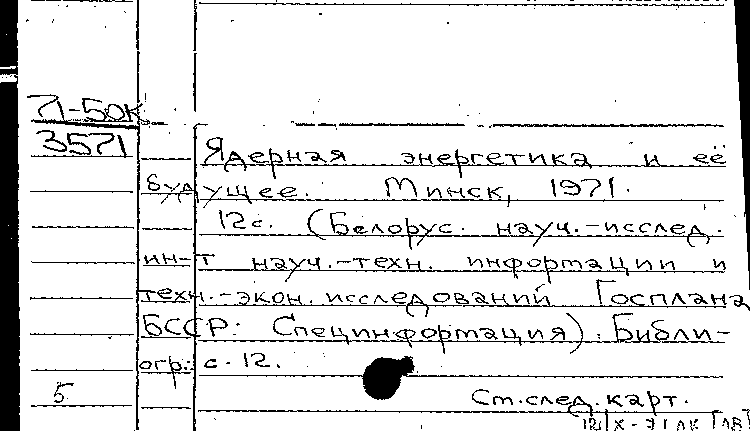 71-50К
3571
Ядерная энергетика и её
будущее. Минск, 1971.
12с. (Белорус. науч.-исслед.
ин-т науч.-техн. информации и
техн.-экон. исследований Госплана
БССР: Специнформация). Библи-
огр.: с. 12.
5 См.след.карт.